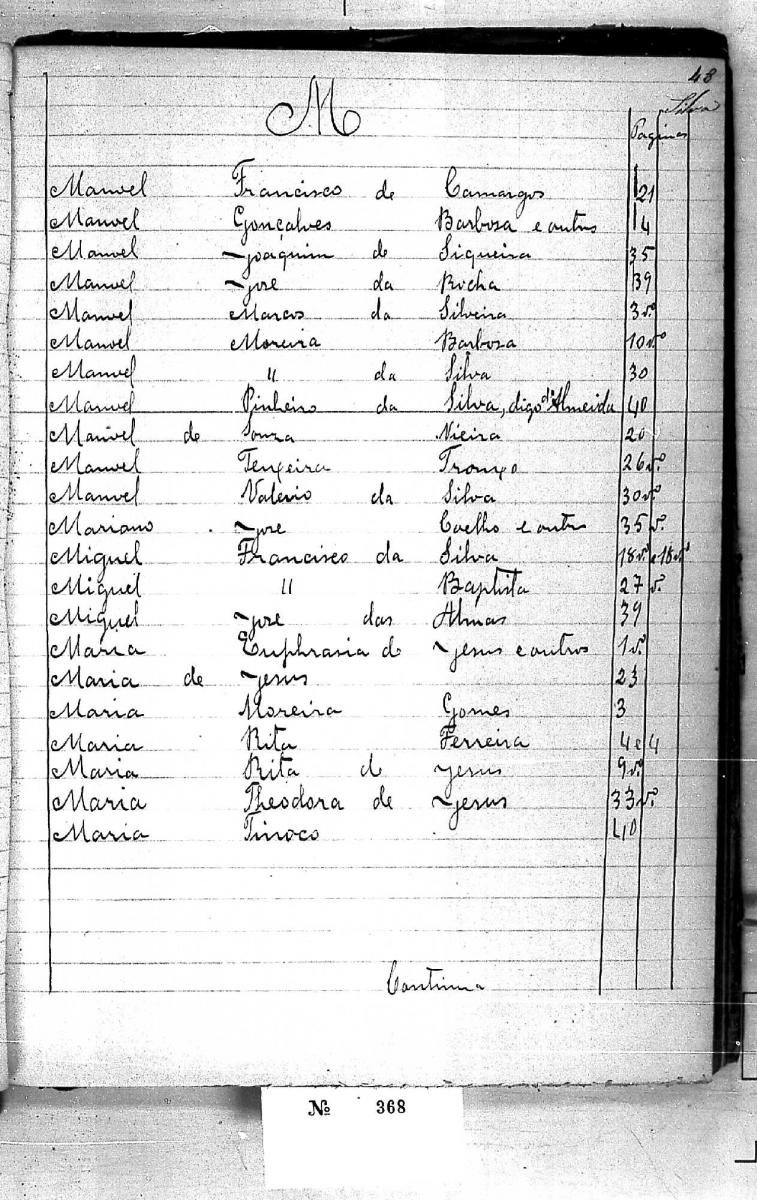 48
Silva
M
Paginas
Manoel Francisco de Camargos 21
Manoel Gonçalves Barbosa e outros 14
Manoel Joaquim de Siqueira 35
Manoel José da Rocha 39
Manoel Marcos da Silveira 3 vº
Manoel Moreira Barbosa 10 vº
Manoel " da Silva 30
Manoel Pinheiro da Silva, digo d'Almeida 40
Manoel de Souza Vieira 20
Manoel Teixeira 26 vº
Manoel Valerio da Silva 30 vº
Mariano José Coelho e outro 35 vº
Miguel Francisco da Silva 18 vº e 18 vº
Miguel " Baptista 27 vº
Miguel José das Almas 39
Maria Euphrasia de Jesus e outros 1 vº
Maria de Jesus 23
Maria Moreira Gomes 3
Maria Rita Ferreira 4 e 4
Maria Rita de Jesus 9 vº
Maria Theodora de Jesus 33 vº
Maria Tinoco 40
Continua
Nº 368